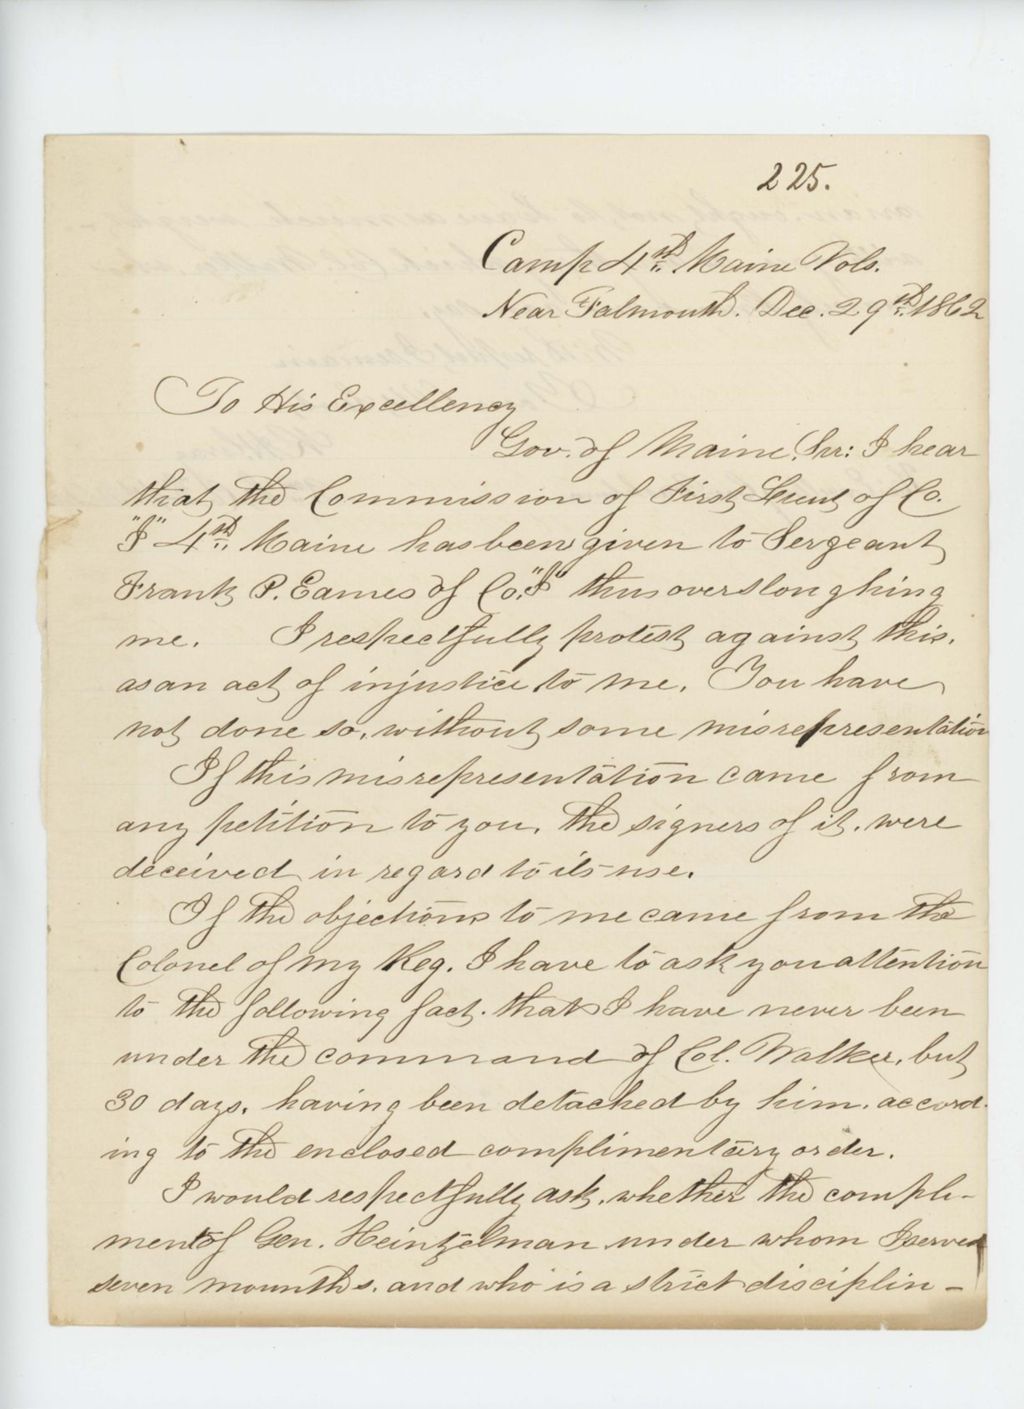 225.
Camp 4th Maine Vols.
Near Falmouth. Dec. 29th 1862
To His Excellency
Gov. of Maine, Sir: I hear
that the Commission of First Lieut of Co.
"I" 4th Maine has been given to Sergeant
Frank P. Eames of Co. "I" thus overslonghing
me. I respectfully protest against this,
as an act of injustice to me. You have
not done so, without some misrepresentation
If this misrepresentation came from
any petition to you, the signers of it, were
deceived in regard to its use.
If the objections to me came from the
Colonel of my Reg. I have to ask you attention
to the following fact. that I have never been
under the command of Col. Walker, but
30 days, having been detached by him, accord-
ing to the enclosed complimentary order.
I would respectfully ask, whether the compli-
ment of Gen. Heintzelman under whom I served
seven mounths, and who is a strict disciplin-